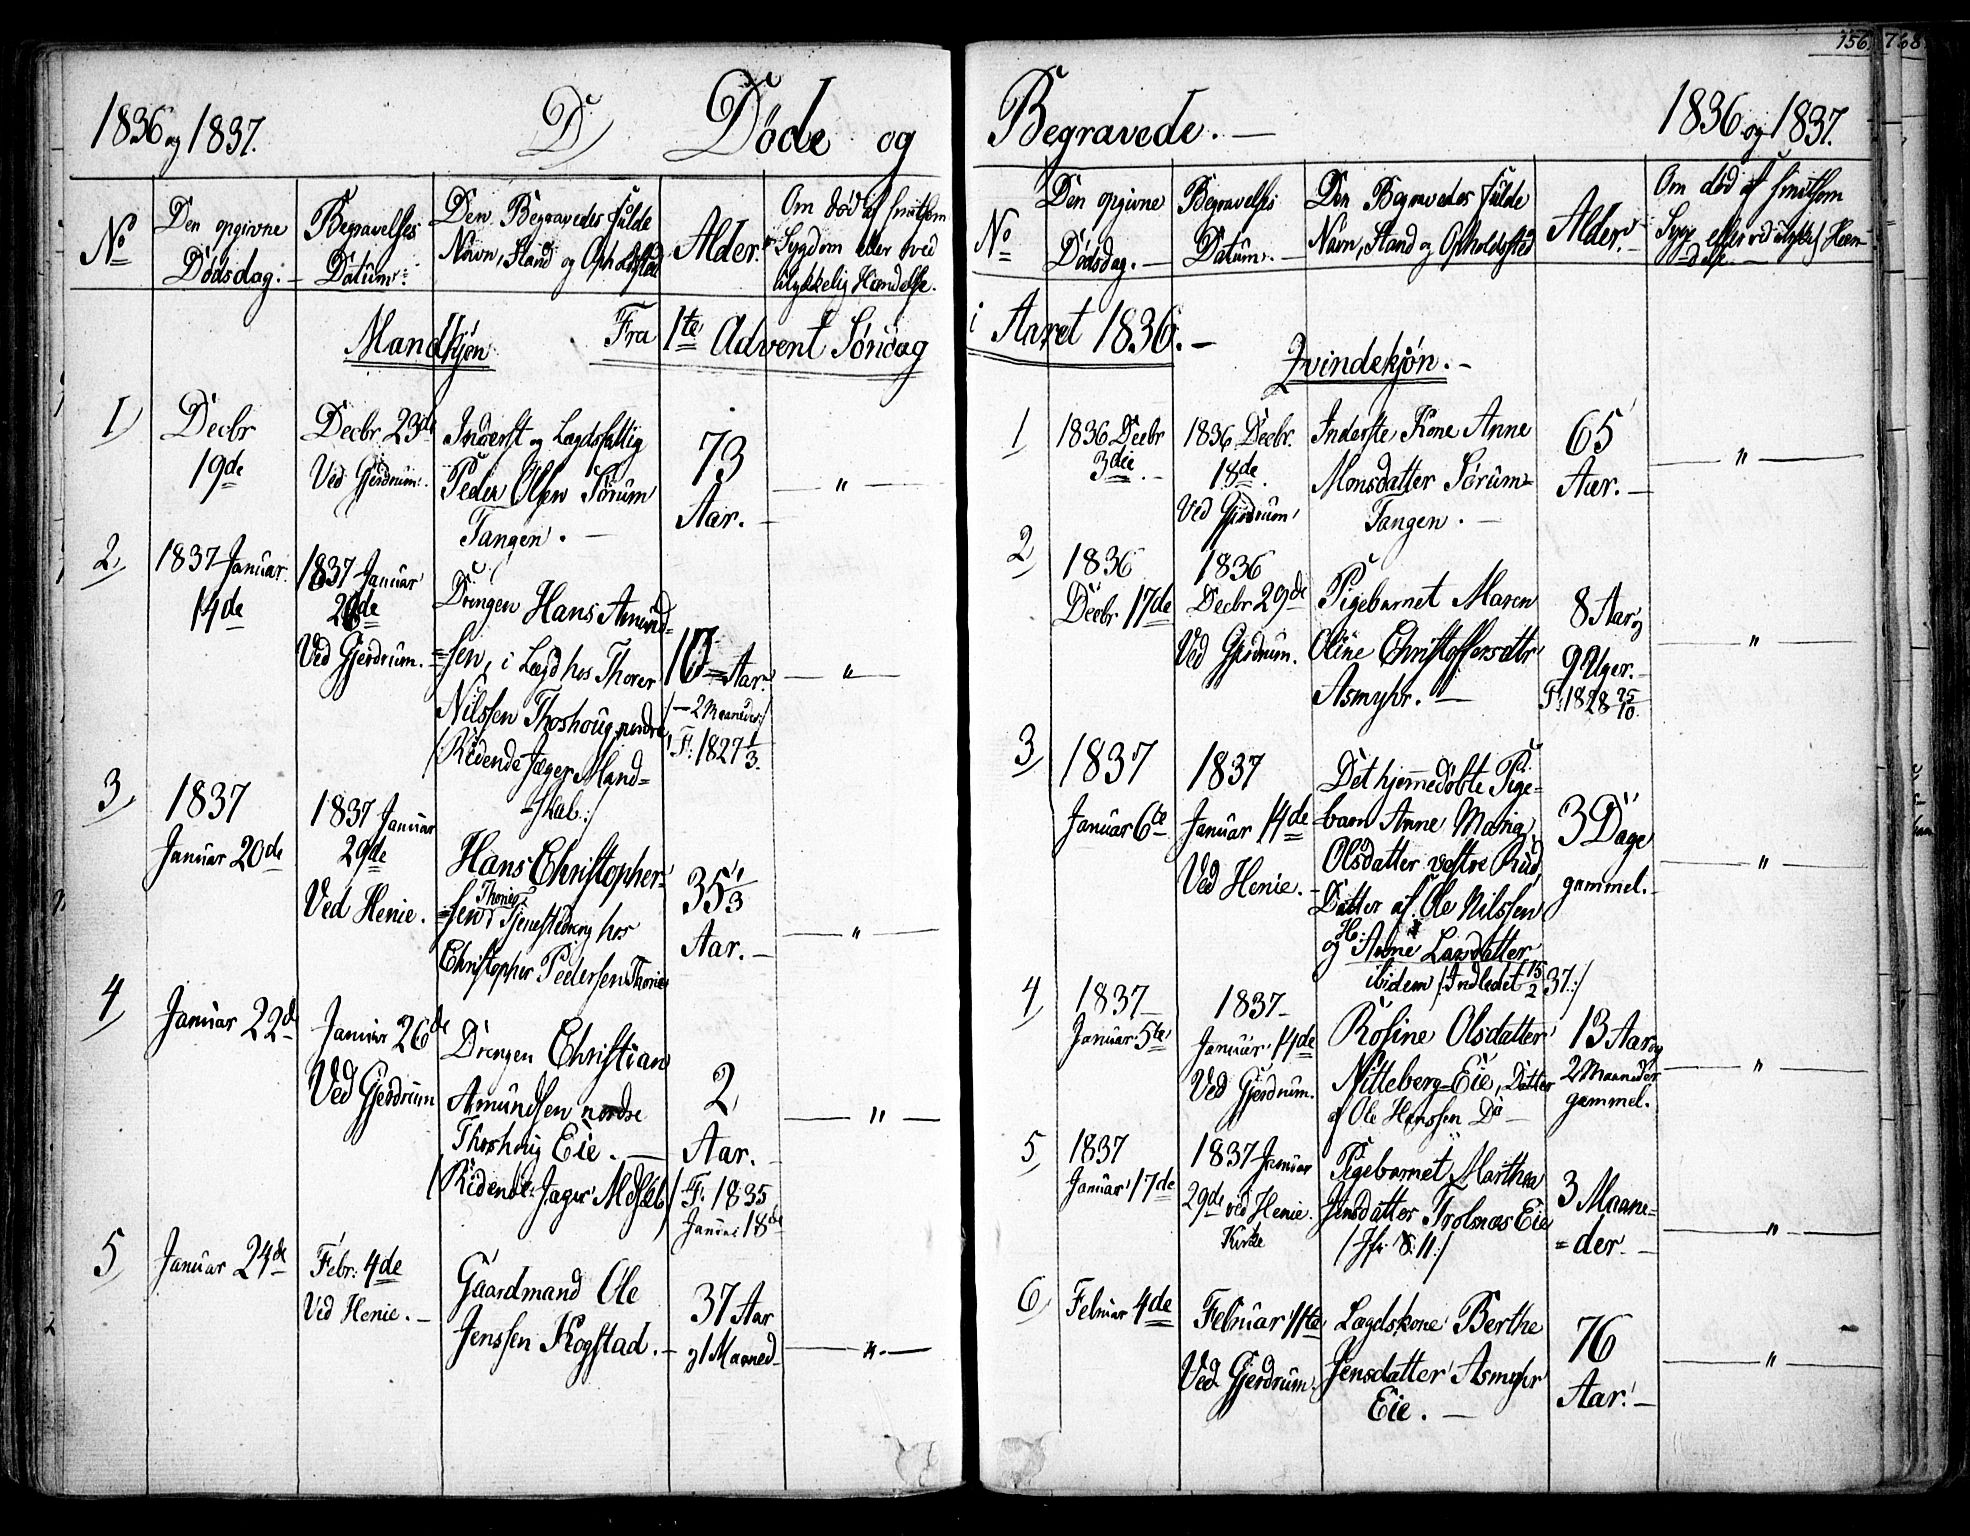 156
768
1836 og 1837.
D) Døde og
Begravede. —
1836 og 1837.
No
Den opgivne
Dødsdag. —
Begravelses
Datum.
Den Begravedes fulde
Navn, Stand og Opholdsted
Alder.
Om død af smitsom
Sygdom eller ved
ulykkelig Hændelse.
Mandkjøn
Fra 1te Advent Søndag
1)
Decbr
19de
Decbr 23de
Ved Gjerdrum.
Inderst og Lægdslellig
Peder Olsen Sørum
Tangen. —
73
Aar. —
— " —
2,
1837 Januar
14de
1837 Januar
26de
Ved Gjerdrum.
Drengen Hans Amund=
=sen, i Lægd hos Thorer
Nilssen Thoshoug nordre
(Ridende Jæger Mand=
=skab:)
10 Aar.
/— 2 Maaneder:/
F. 1827 1/3.
— " —
3,
1837
Januar 20de
1837 Januar
29de
Ved Henie.
Hans Christopher=
=sen Thonie, Tjenestedreng hos
Christopher Pedersen Thonie
35 1/3
Aar. —
— " —
4)
Januar 22de
Januar 26de
Ved Gjerdrum
Drengen Christian
Amundsen nordre
Thoshoug Eie. —
(Ridende Jæger Mdskab)
2
Aar. —
F. 1835
Januar 18de
— " —
5)
Januar 24de
Febr: 4de
Ved Henie. —
Gaardmand Ole
Jenssen Kogstad. —
37 Aar
og 1 Maaned —
— " —
No
Den opgivne
Dødsdag. —
Begravelses
Datum. —
Den Begravedes fulde
Navn, Stand og Opholdsted
Alder. —
Om død af smitsom
Syge eller ved ulykkel. Hæn=
delse. —
i Aaret 1836. —
Qvindekjøn. —
1
1836 Decbr
3die. —
1836 Decbr.
18de.
Ved Gjerdrum
Inderste Kone Anne
Monsdatter Sørum=
Tangen. —
65
Aar. —
— " —
2)
1836
Decbr 17de
1836
Decbr 29de
Ved Gjerdrum.
Pigebarnet Maren
Oline Christoffersdatr
Asmyhr. —
8 Aar og
9 Uger. —
F. 1828 25/10.
— " —
3)
1837
Januar 6te
1837
Januar 14de
Ved Henie. —
Det hjemmedøbte Pige=
barn Anne Maria
Olsdatter vestre Rud,
Datter af Ole Nilssen
og H: Anne Larsdatter
ibidem (Indledet 15/2 37:/
3 Dage
gammel. —
— " —
4)
1837 —
Januar 5te
1837 —
Januar 14de
Ved Gjerdrum.
Rosine Olsdatter
Nitteberg=Eie, Datter
af Ole Hanssen Do —
13 Aar og
2 Maaneder
gammel.
— " —
5)
1837
Januar 17de
1837 Januar
29de ved Henie
Kirke
Pigebarnet Marthea
Jensdatter Trolsnæs Eie
(Jfr. S: 11:/
3 Maane=
=der. —
— " —
6,
Februar 4de
Februar 11te
Ved Gjerdrum.
Lægdskone Berthe
Jensdatter Asmyhr
Eie. —
76
Aar. —
— " —